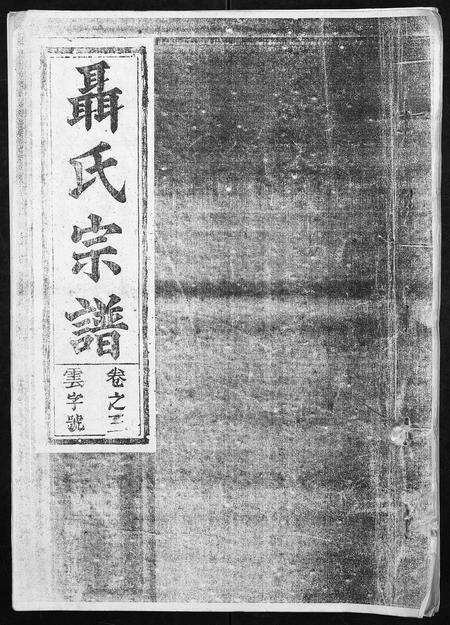 聶氏宗譜
卷之三
雲字號